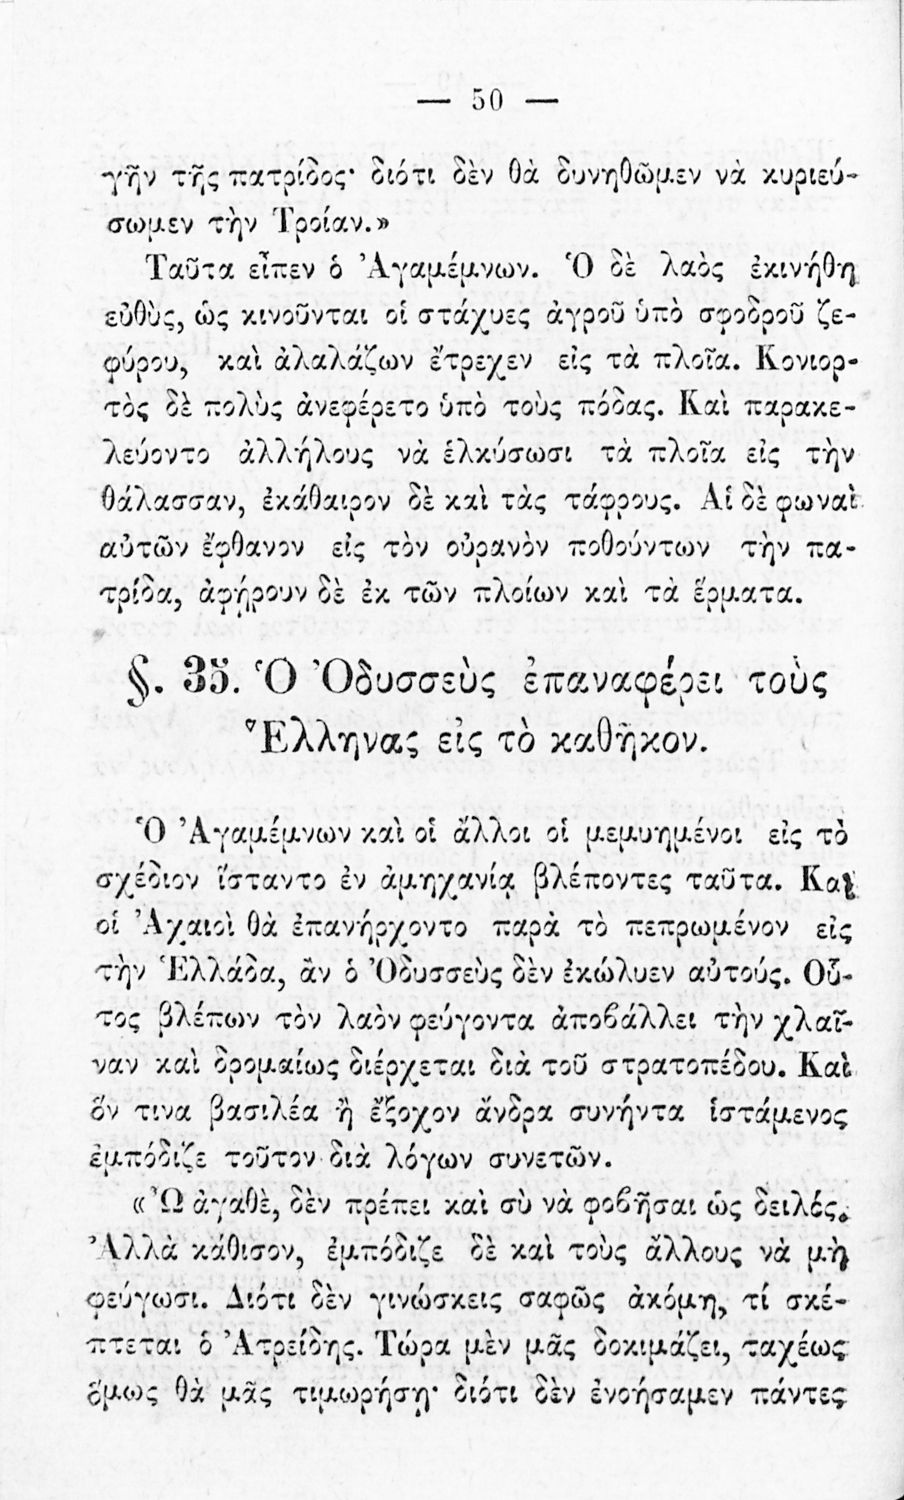 — 50 —
γῆν τῆς πατρίδος· διότι δὲν θὰ δυνηθῶμεν νὰ κυριεύ-
σωμεν τὴν Τροίαν.»
Ταῦτα εἶπεν ὁ Ἀγαμέμνων. Ὁ δὲ λαὸς ἐκινήθη
εὐθὺς, ὡς κινοῦνται οἱ στάχυες ἀγροῦ ὑπὸ σφοδροῦ ζε-
φύρου, καὶ ἀλαλάζων ἔτρεχεν εἰς τὰ πλοῖα. Κονιορ-
τὸς δὲ πολὺς ἀνεφέρετο ὑπὸ τοὺς πόδας. Καὶ παρακε-
λεύοντο ἀλλήλους νὰ ἑλκύσωσι τὰ πλοῖα εἰς τὴν
θάλασσαν, ἐκάθαιρον δὲ καὶ τὰς τάφρους. Αἱ δὲ φωναὶ
αὐτῶν ἔφθανον εἰς τὸν οὐρανὸν ποθούντων τὴν πα-
τρίδα, ἀφῄρουν δὲ ἐκ τῶν πλοίων καὶ τὰ ἕρματα.
§. 35. Ὁ Ὀδυσσεὺς ἐπαναφέρει τοὺς
Ἕλληνας εἰς τὸ καθῆκον.
Ὁ Ἀγαμέμνων καὶ οἱ ἄλλοι οἱ μεμυημένοι εἰς τὸ
σχέδιον ἵσταντο ἐν ἀμηχανίᾳ βλέποντες ταῦτα. Καὶ
οἱ Ἀχαιοὶ θὰ ἐπανήρχοντο παρὰ τὸ πεπρωμένον εἰς
τὴν Ἑλλάδα, ἂν ὁ Ὀδυσσεὺς δὲν ἐκώλυεν αὐτούς. Οὗ-
τος βλέπων τὸν λαὸν φεύγοντα ἀποβάλλει τὴν χλαῖ-
ναν καὶ δρομαίως διέρχεται διὰ τοῦ στρατοπέδου. Καὶ
ὅν τινα βασιλέα ἢ ἔξοχον ἄνδρα συνήντα ἱστάμενος
ἐμπόδιζε τοῦτον διὰ λόγων συνετῶν.
«Ὦ ἀγαθὲ, δὲν πρέπει καὶ σὺ νὰ φοβῆσαι ὡς δειλός.
Ἀλλὰ κάθισον, ἐμπόδιζε δὲ καὶ τοὺς ἄλλους νὰ μὴ
φεύγωσι. Διότι δὲν γινώσκεις σαφῶς ἀκόμη, τί σκέ-
πτεται ὁ Ἀτρείδης. Τώρα μὲν μᾶς δοκιμάζει, ταχέως
ὅμως θὰ μᾶς τιμωρήσῃ· διότι δὲν ἐνοήσαμεν πάντες